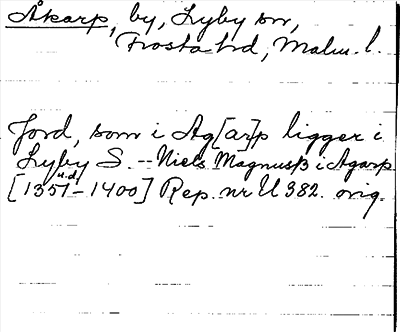 Åkarp, by, Lyby sn,
Frosta hd, Malm. l.
Jord, som i Ag[ar]p ligger i
Lyby S. -- Niels Magnusß i Agarp
u.d.
[1351-1400] Rep. nr U 382. orig.